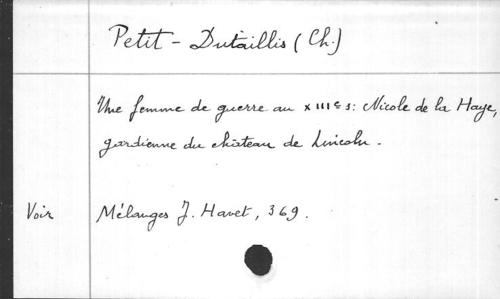 Petit-Dutaillis (Ch.)
Une femme de guerre au XIIIe s: Nicole de la Haye,
gardienne du château de Lincoln.
Voir Mélanges J. Havet, 369.